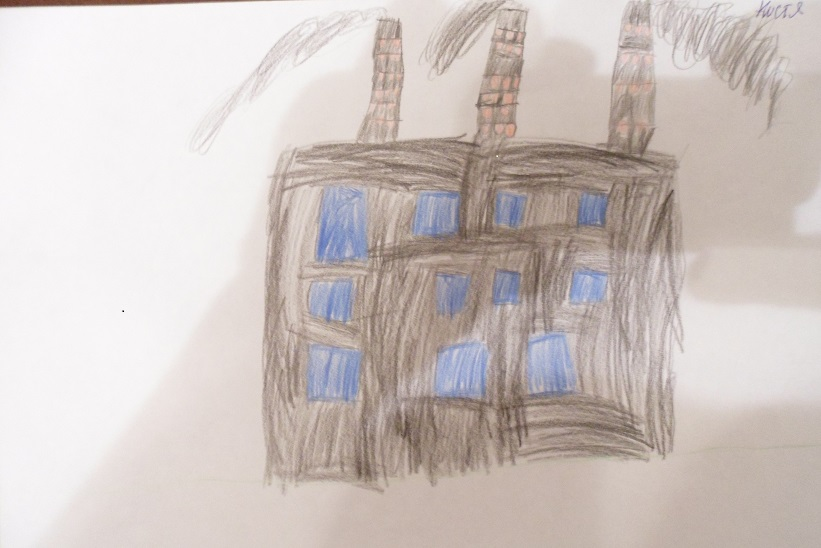 Костя